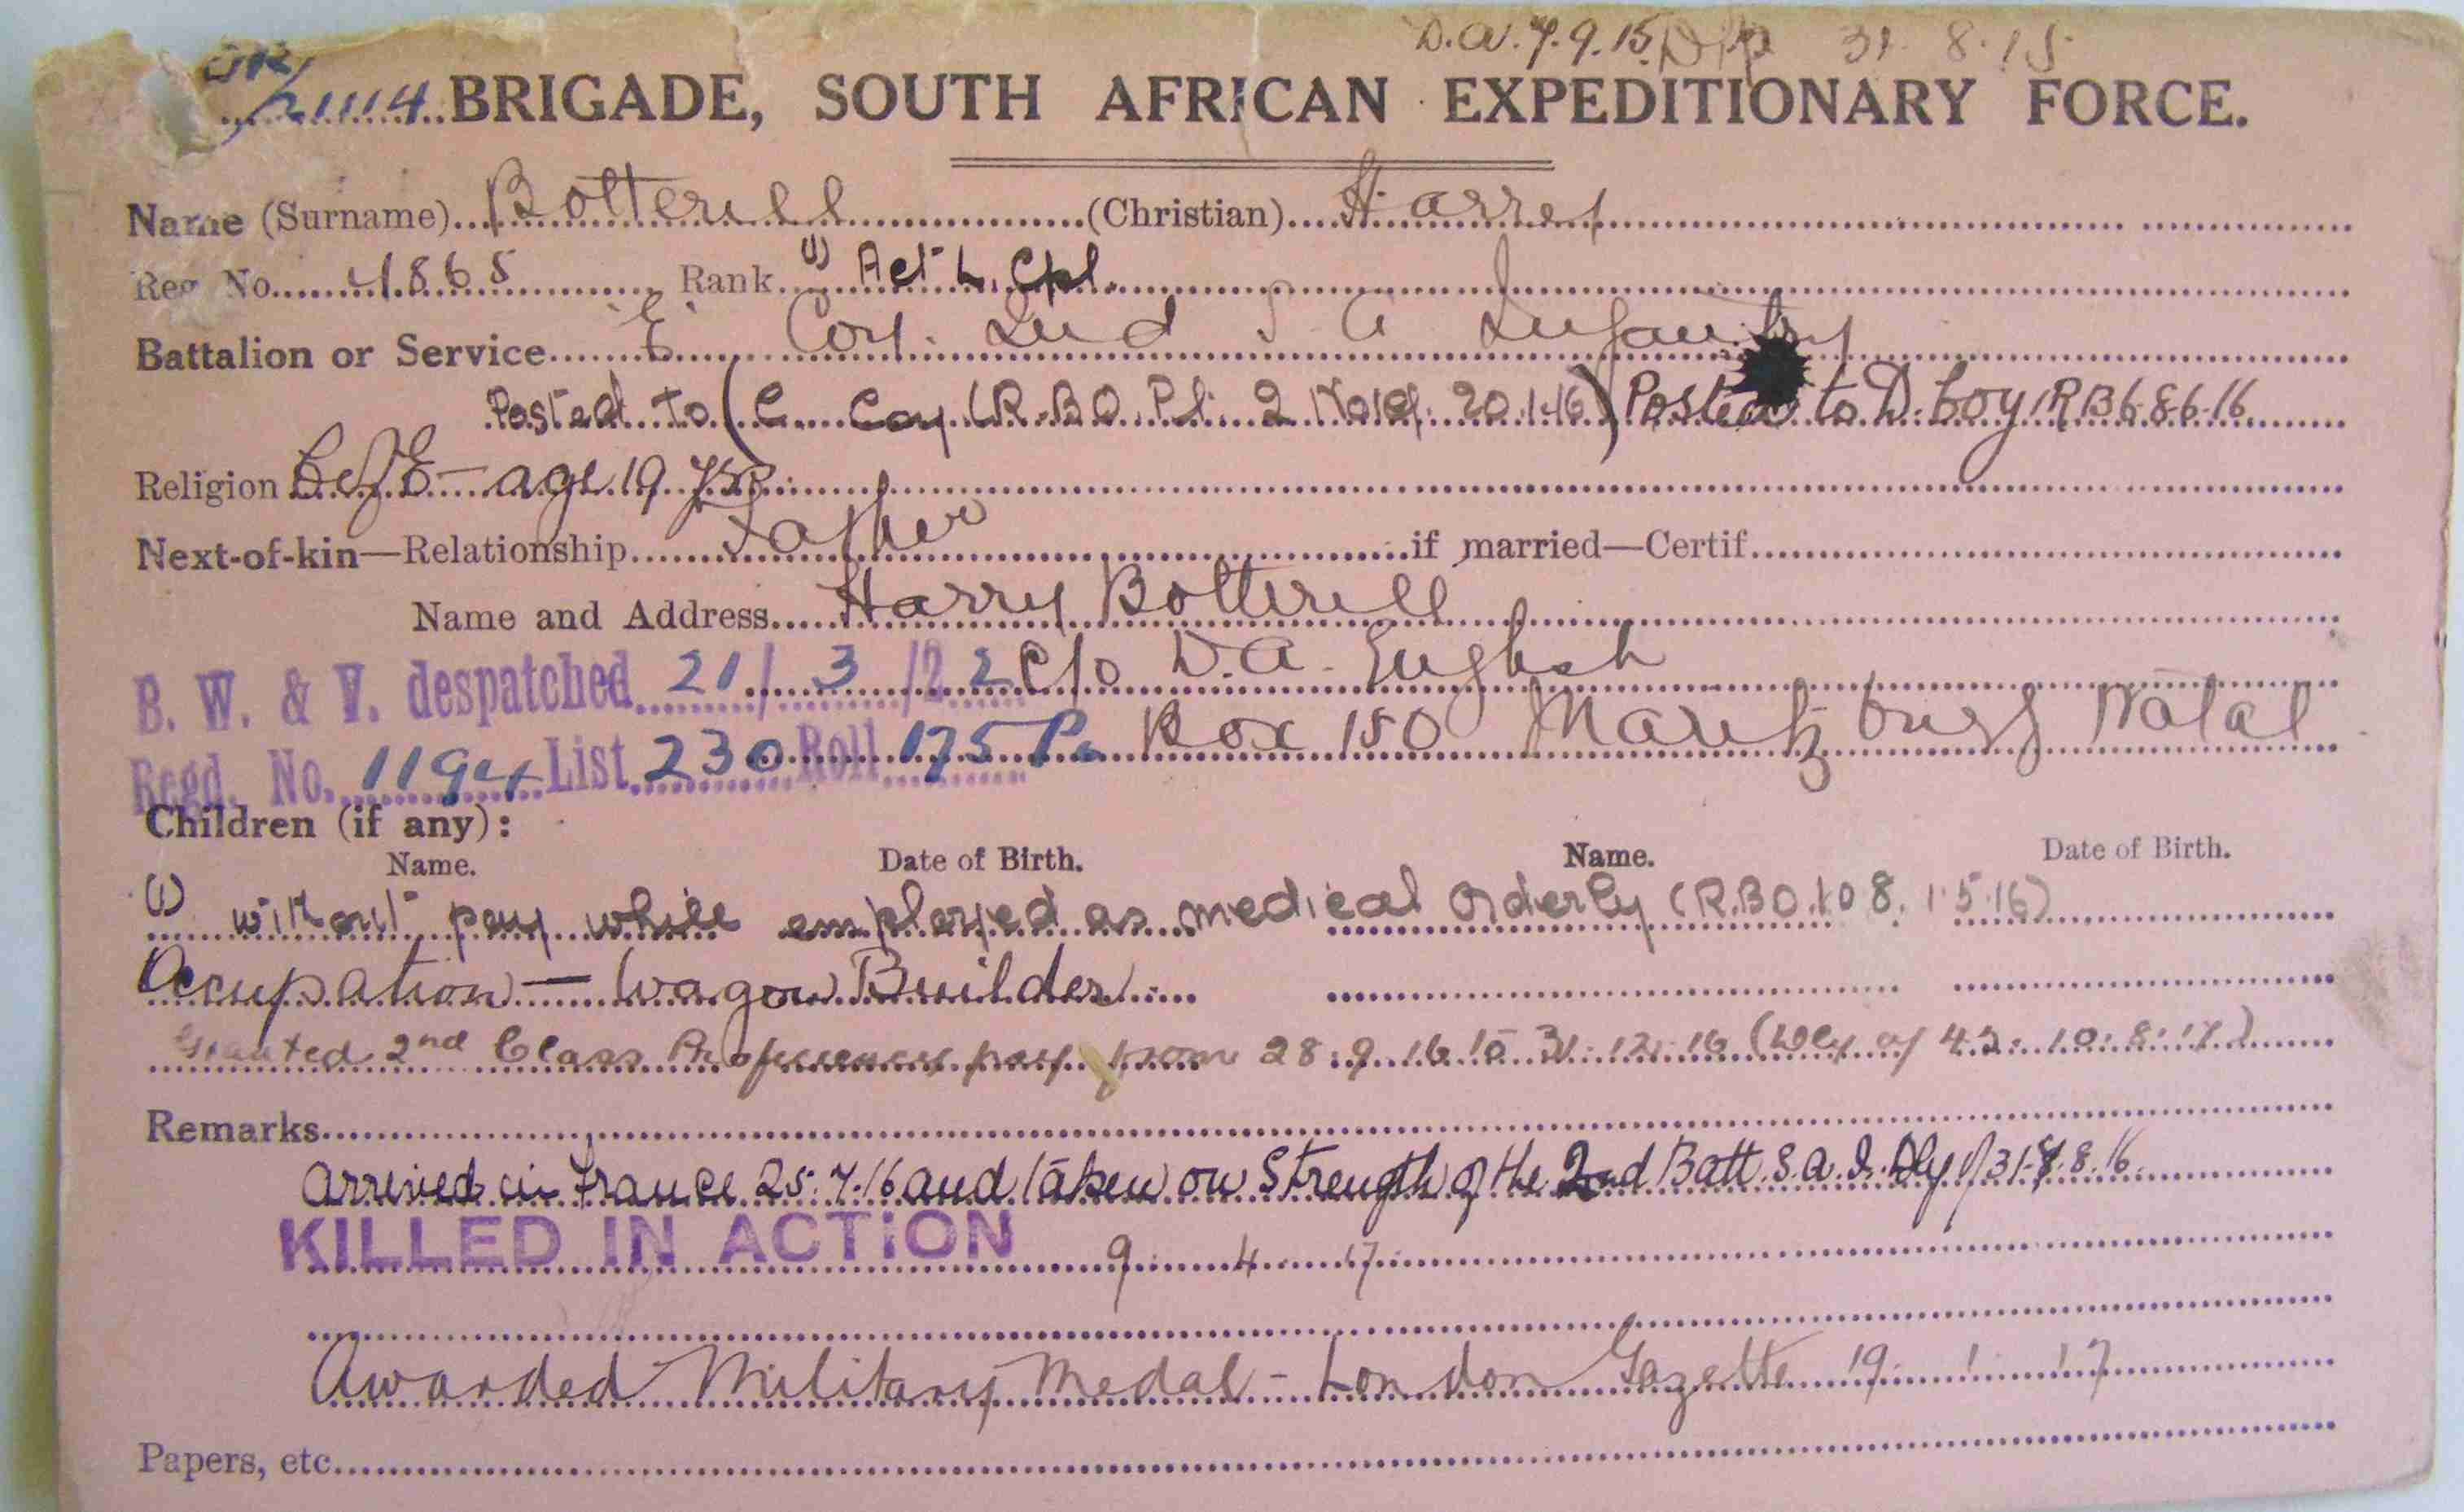 D.A. 7.9.15. 31. 8. 15
21114 BRIGADE, SOUTH AFRICAN EXPEDITIONARY FORCE.
Name (Surname) Botterill (Christian) Harry
Reg. No. 4865 Rank (1) Act L. Cpl.
Battalion or Service 'E' Coy. 2nd S A Infantry
Posted to (C Coy (R.B.O. Pt. 2 No 19. 20.1.16) Posted to D. Coy. R B 6. 8.6.16
Religion C of E — age 19 yrs
Next-of-kin—Relationship Father if married—Certif.
Name and Address Harry Botterill
B. W. & V. despatched 21 / 3 /22 c/o D.A. English
Regd. No. 1194 List 230 Roll 175 Po Box 150 Maritzburg Natal
Children (if any):
Name. Date of Birth. Name. Date of Birth.
(1) without pay while employed as medical orderly (R.B.O. 108. 1.5.16)
Occupation — Wagon Builder
Granted 2nd Class Proficiency pay from 28.9.16 to 31.12.16 (Dly of 42. 10.8.17)
Remarks
Arrived in France 25.7.16 and taken on Strength of the 2nd Batt. S.A.I. Dly of 31. 8.16
KILLED IN ACTION 9 4 17
Awarded Military Medal - London Gazette 19. 1. 17
Papers, etc.